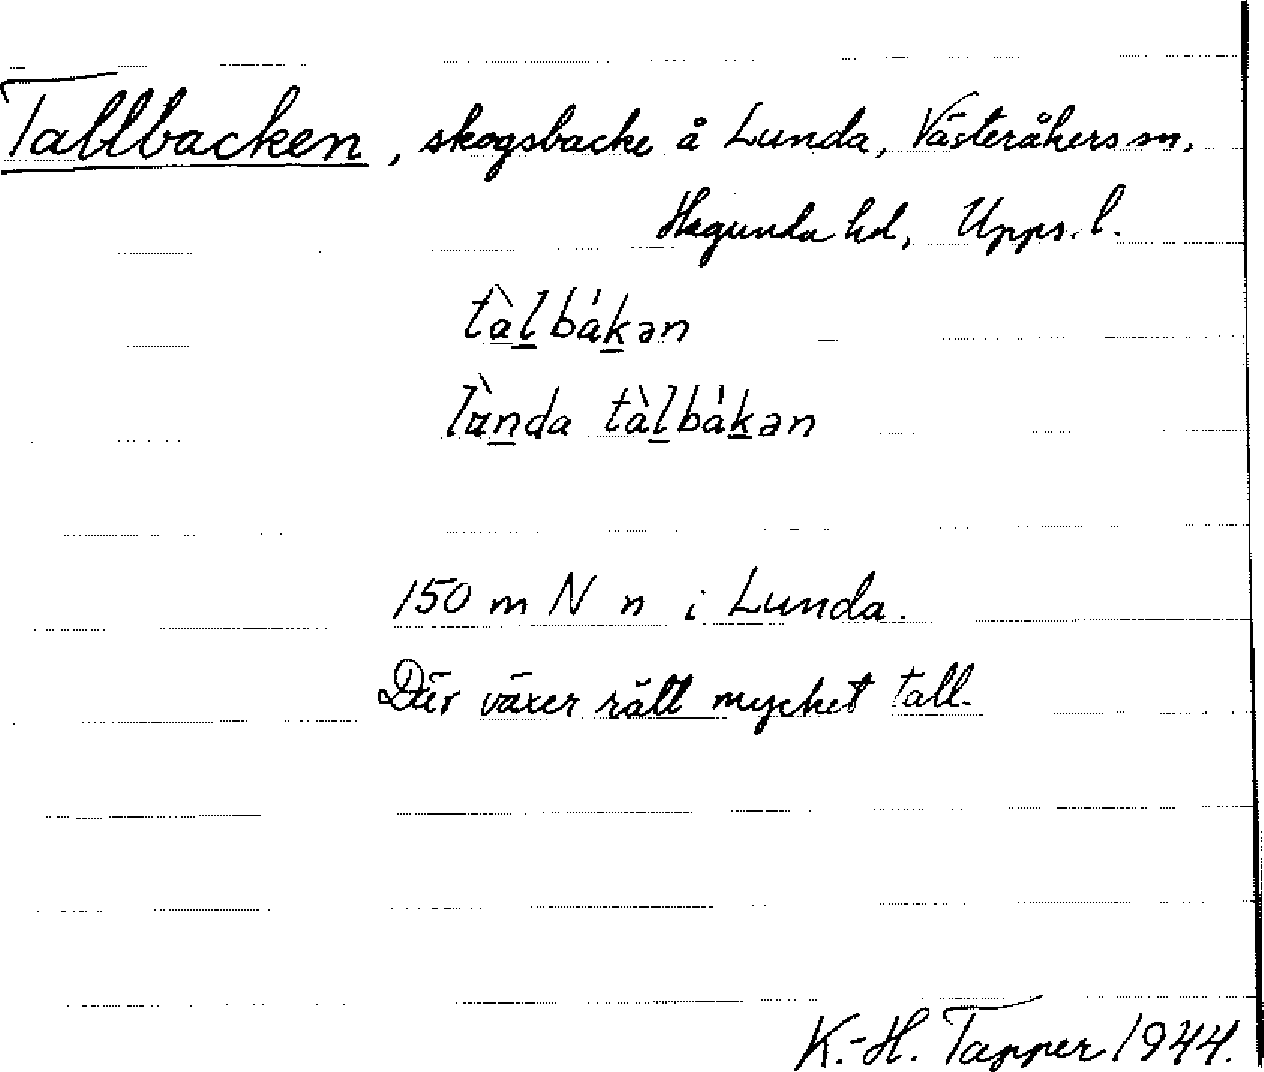 Tallbacken, skogsbacke å Lunda, Västeråkers sn,
Hagunda hd, Upps. l.
tàl̲bák̲ən
lùn̲da tàl̲bák̲ən
150 m N n i Lunda.
Där växer rätt mycket tall.
K.-H. Tapper 1944.